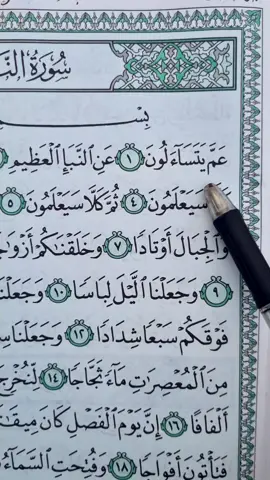 سُورَةُ
بِسْمِ
عَمَّ يَتَسَآءَلُونَ ١ عَنِ ٱلنَّبَإِ ٱلْعَظِيمِ
سَيَعْلَمُونَ ٤ ثُمَّ كَلَّا سَيَعْلَمُونَ ٥
وَٱلْجِبَالَ أَوْتَادًا ٧ وَخَلَقْنَٰكُمْ
٩ وَجَعَلْنَا ٱلَّيْلَ لِبَاسًا ١٠ وَجَعَلْنَا
فَوْقَكُمْ سَبْعًا شِدَادًا ١٢ وَجَعَلْنَا
مِنَ ٱلْمُعْصِرَٰتِ مَآءً ثَجَّاجًا ١٤ لِّنُخْرِجَ
أَلْفَافًا ١٦ إِنَّ يَوْمَ ٱلْفَصْلِ كَانَ
فَتَأْتُونَ أَفْوَاجًا ١٨ وَفُتِحَتِ ٱلسَّمَآءُ